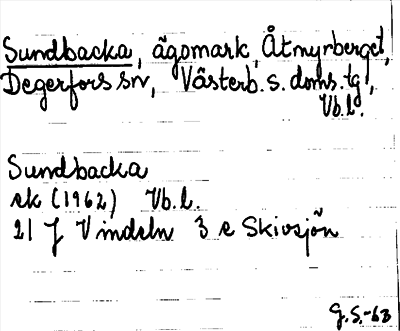 Sundbacka, ägomark, Åtmyrberget,
Degerfors sn, Västerb. s. doms. tg,
Vb. l.
Sundbacka
ek (1962) Vb. l.
21 J Vindeln 3 e Skivsjön
G. S. -63